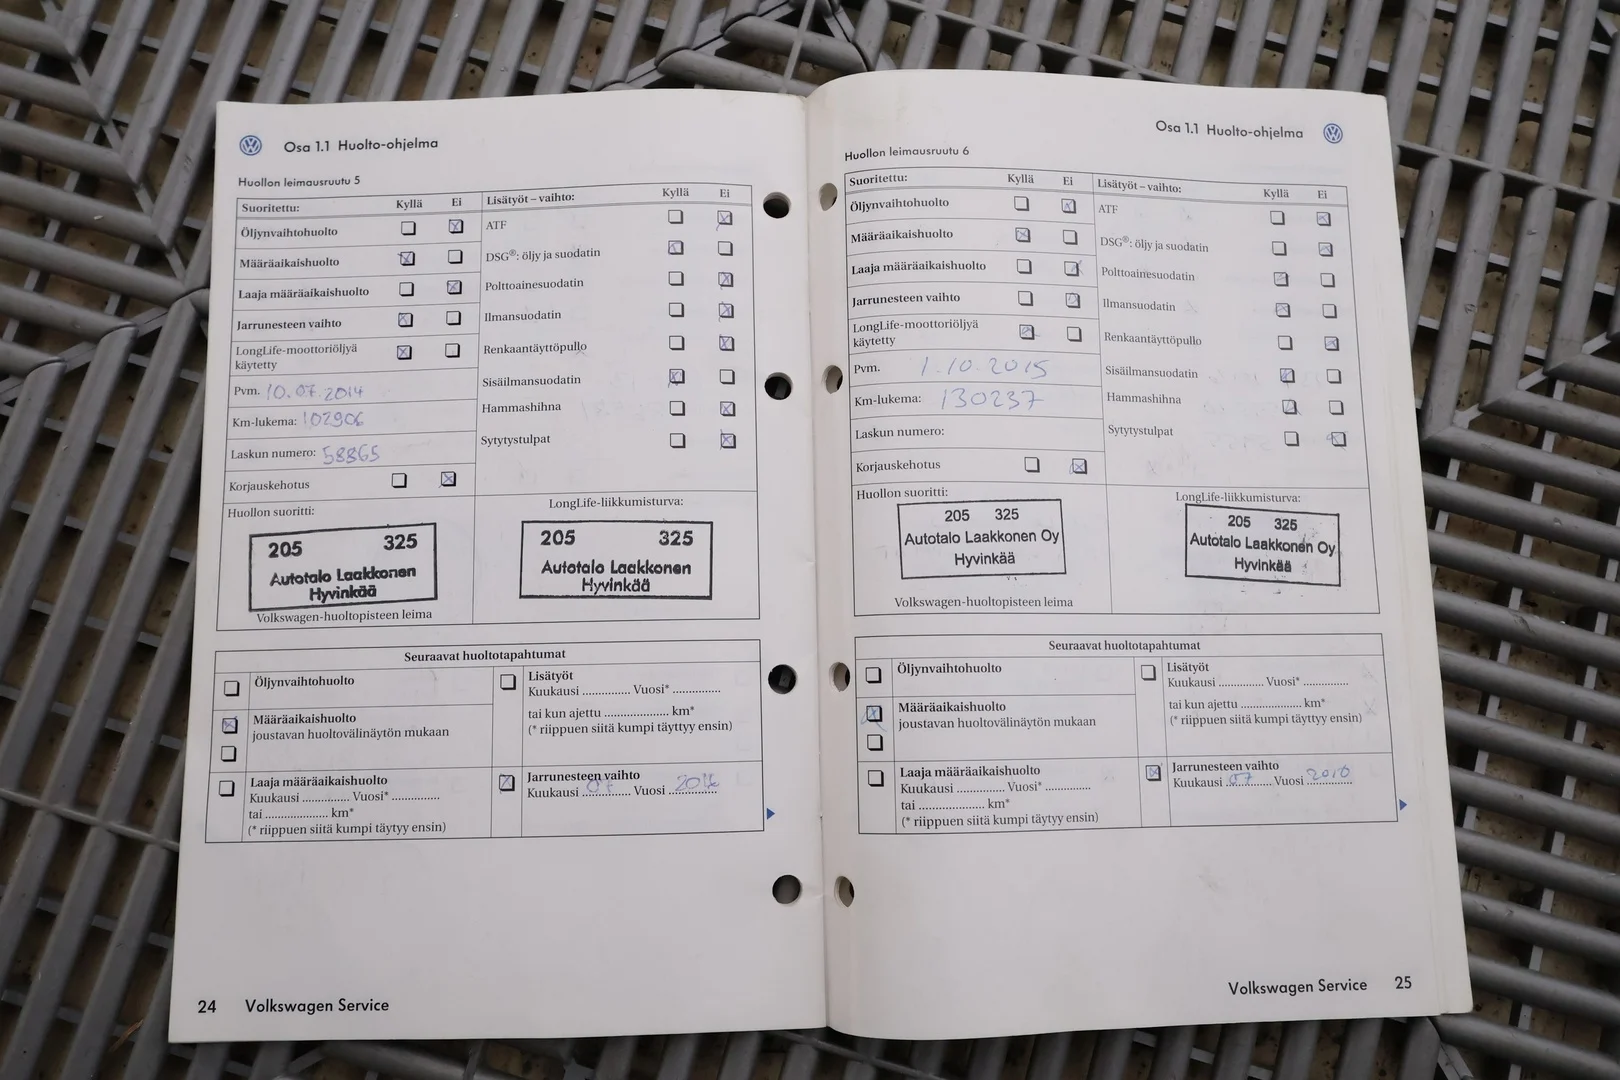 Osa 1.1 Huolto-ohjelma
Huollon leimausruutu 5
Suoritettu: Kyllä Ei
Öljynvaihtohuolto
Määräaikaishuolto
Laaja määräaikaishuolto
Jarrunesteen vaihto
LongLife-moottoriöljyä
käytetty
Pvm. 10.07.2014
Km-lukema: 102906
Laskun numero: 58865
Korjauskehotus
Lisätyöt – vaihto: Kyllä Ei
ATF
DSG®: öljy ja suodatin
Polttoainesuodatin
Ilmansuodatin
Renkaantäyttöpullo
Sisäilmansuodatin
Hammashihna
Sytytystulpat
Huollon suoritti:
205 325
Autotalo Laakkonen
Hyvinkää
Volkswagen-huoltopisteen leima
LongLife-liikkumisturva:
205 325
Autotalo Laakkonen
Hyvinkää
Seuraavat huoltotapahtumat
Öljynvaihtohuolto
Määräaikaishuolto
joustavan huoltovälinäytön mukaan
Laaja määräaikaishuolto
Kuukausi ............... Vuosi* ...............
tai .................... km*
(* riippuen siitä kumpi täytyy ensin)
Lisätyöt
Kuukausi ............... Vuosi* ...............
tai kun ajettu .................... km*
(* riippuen siitä kumpi täyttyy ensin)
Jarrunesteen vaihto
Kuukausi 07 Vuosi 2016
24 Volkswagen Service
Osa 1.1 Huolto-ohjelma
Huollon leimausruutu 6
Suoritettu: Kyllä Ei
Öljynvaihtohuolto
Määräaikaishuolto
Laaja määräaikaishuolto
Jarrunesteen vaihto
LongLife-moottoriöljyä
käytetty
Pvm. 1.10.2015
Km-lukema: 130237
Laskun numero:
Korjauskehotus
Lisätyöt – vaihto: Kyllä Ei
ATF
DSG®: öljy ja suodatin
Polttoainesuodatin
Ilmansuodatin
Renkaantäyttöpullo
Sisäilmansuodatin
Hammashihna
Sytytystulpat
Huollon suoritti:
205 325
Autotalo Laakkonen Oy
Hyvinkää
Volkswagen-huoltopisteen leima
LongLife-liikkumisturva:
205 325
Autotalo Laakkonen Oy
Hyvinkää
Seuraavat huoltotapahtumat
Öljynvaihtohuolto
Määräaikaishuolto
joustavan huoltovälinäytön mukaan
Laaja määräaikaishuolto
Kuukausi ............... Vuosi* ...............
tai .................... km*
(* riippuen siitä kumpi täytyy ensin)
Lisätyöt
Kuukausi ............... Vuosi* ...............
tai kun ajettu .................... km*
(* riippuen siitä kumpi täyttyy ensin)
Jarrunesteen vaihto
Kuukausi 07 Vuosi 2016
Volkswagen Service 25